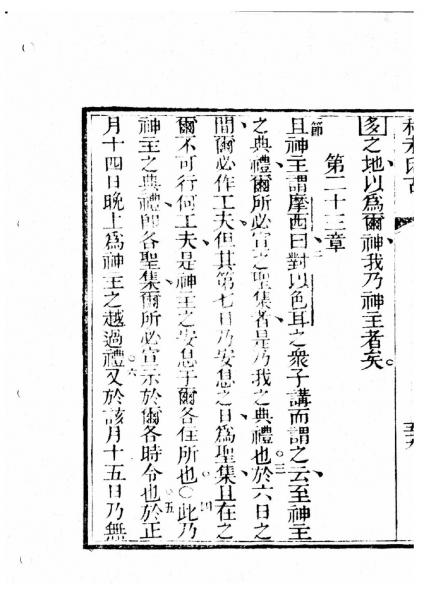 多之地以爲爾神我乃神主者矣。
第二十三章
節
且神主謂摩西曰二對以色耳之衆子講而謂之云至神主
之典禮爾所必宣之聖集者是乃我之典禮也○三於六日之
間爾必作工夫但其第七日乃安息之日爲聖集且在之
爾不可行何工夫是神主之安息于爾各住所也○四此乃
神主之典禮即各聖集爾所必宣示於爾各時令也○五於正
月十四日晚上爲神主之越過禮○六又於該月十五日乃無